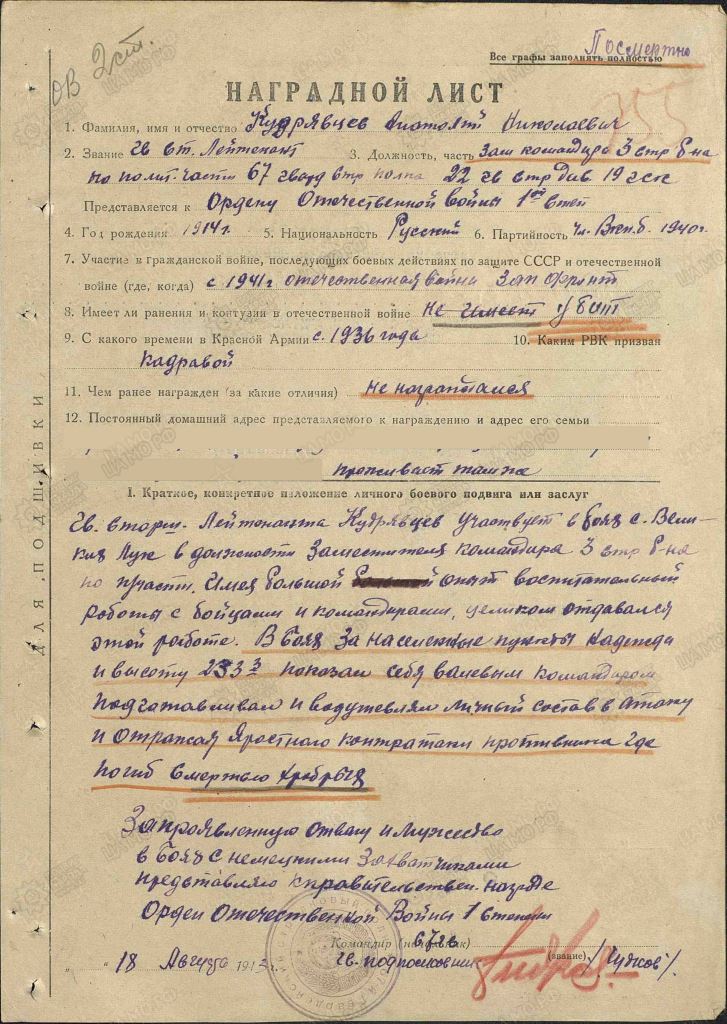 ОВ 2ст.
Посмертно
Все графы заполнять полностью
НАГРАДНОЙ ЛИСТ
1. Фамилия, имя и отчество Кудрявцев Анатолий Николаевич
2. Звание гв ст. Лейтенант 3. Должность, часть Зам командира 3 стр б-на
по полит.части 67 гвард стр полка 22 гв стр див. 19 гск
Представляется к Ордену Отечественной войны 1ой степ
4. Год рождения 1914г. 5. Национальность Русский 6. Партийность чл. Вкп.б. 1940г.
7. Участие в гражданской войне, последующих боевых действиях по защите СССР и отечественной
войне (где, когда) с 1941г отечественная война Зап Фронт
8. Имеет ли ранения и контузии в отечественной войне Не имеет убит
9. С какого времени в Красной Армии с. 1936 года 10. Каким РВК призван
Кадравой
11. Чем ранее награжден (за какие отличия) не награждался
12. Постоянный домашний адрес представляемого к награждению и адрес его семьи
проживает там же
I. Краткое, конкретное изложение личного боевого подвига или заслуг
Гв. старш. Лейтенанта Кудрявцев участвует в боях с. Вели-
кия Лук в должности Заместителя командира 3 стр б-на
по п/части. Имея большой опыт воспитательный
работы с бойцами и командирами, целиком отдавался
этой работе. В боях За населенные пункты Надежда
и высоту 233 3 показал себя волевым командиром
подготавливал и водушевлял личный состав в атаку
и отражая Яростного контратаки противника где
погиб смертью храбрых
За проявленную отвагу и мужество
в боях с немецкими Захватчиками
представляю к правительствен. награде
Орден Отечественной Войны 1 степени
Командир (начальник) 67 гв
гв. подполковник (звание) /Чудков/.
" 18 Августа 194
ДЛЯ ПОДШИВКИ
ЦАМО РФ